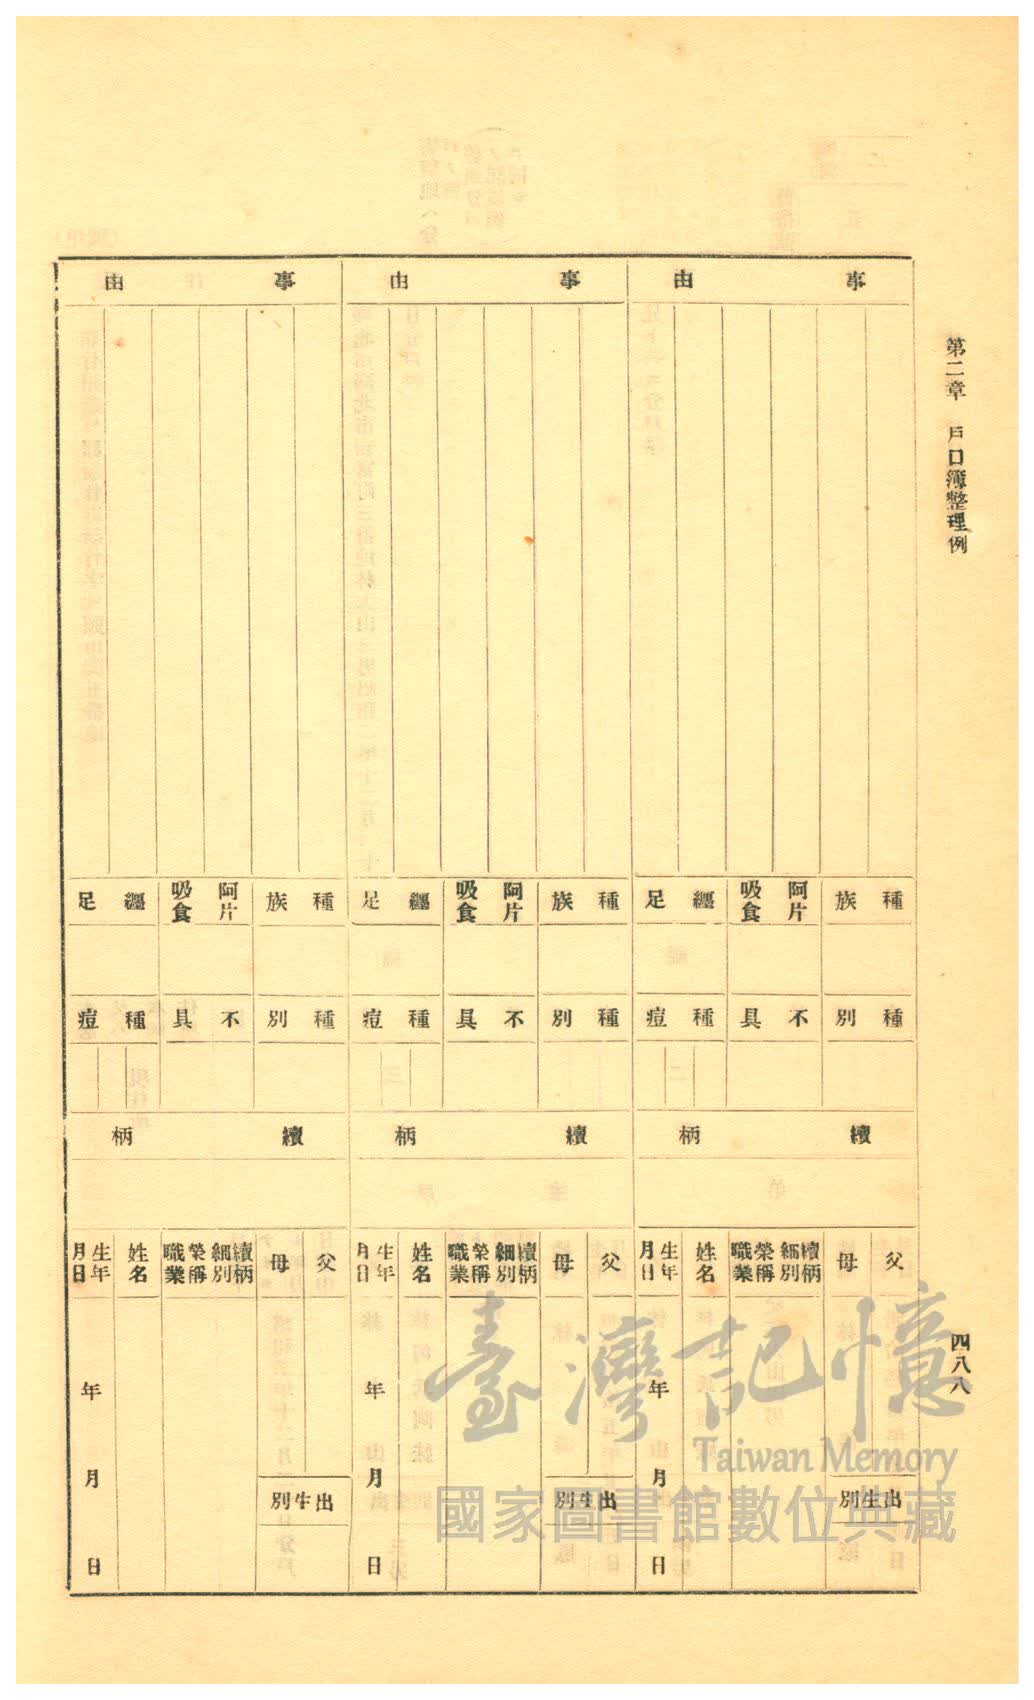 第二章　戶口簿整理例
四八八
事由
種族
阿片吸食
纏足
種別
不具
種痘
續柄
父
母
出生別
續柄細別
榮稱職業
姓名
生年月日
年月日
事由
種族
阿片吸食
纏足
種別
不具
種痘
續柄
父
母
出生別
續柄細別
榮稱職業
姓名
生年月日
年月日
事由
種族
阿片吸食
纏足
種別
不具
種痘
續柄
父
母
出生別
續柄細別
榮稱職業
姓名
生年月日
年月日
臺灣記憶
Taiwan Memory
國家圖書館數位典藏